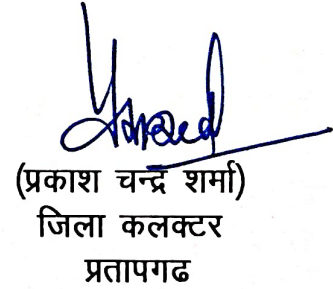 (प्रकाश चन्द्र शर्मा)
जिला कलक्टर
प्रतापगढ